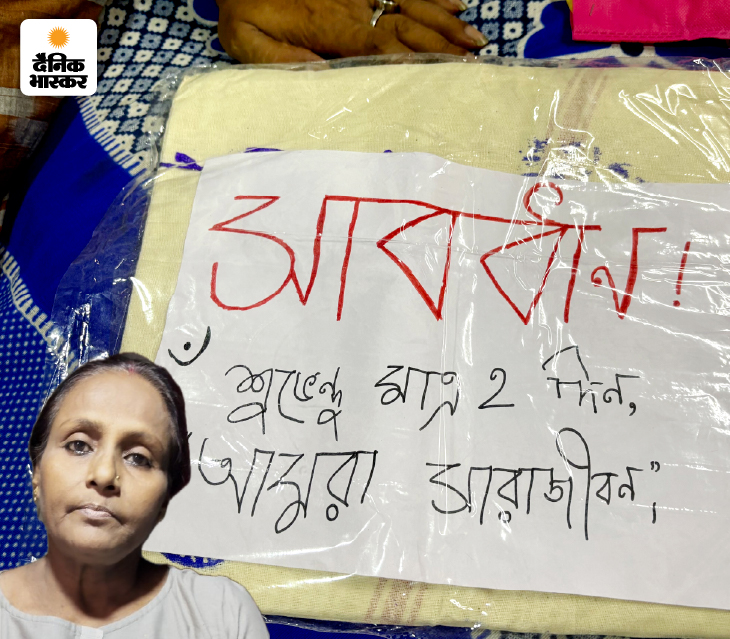 दैनिक
भास्कर
সাবধান!
ঁ শুভেন্দু মাত্র ২ দিন,
"আমরা সারাজীবন",